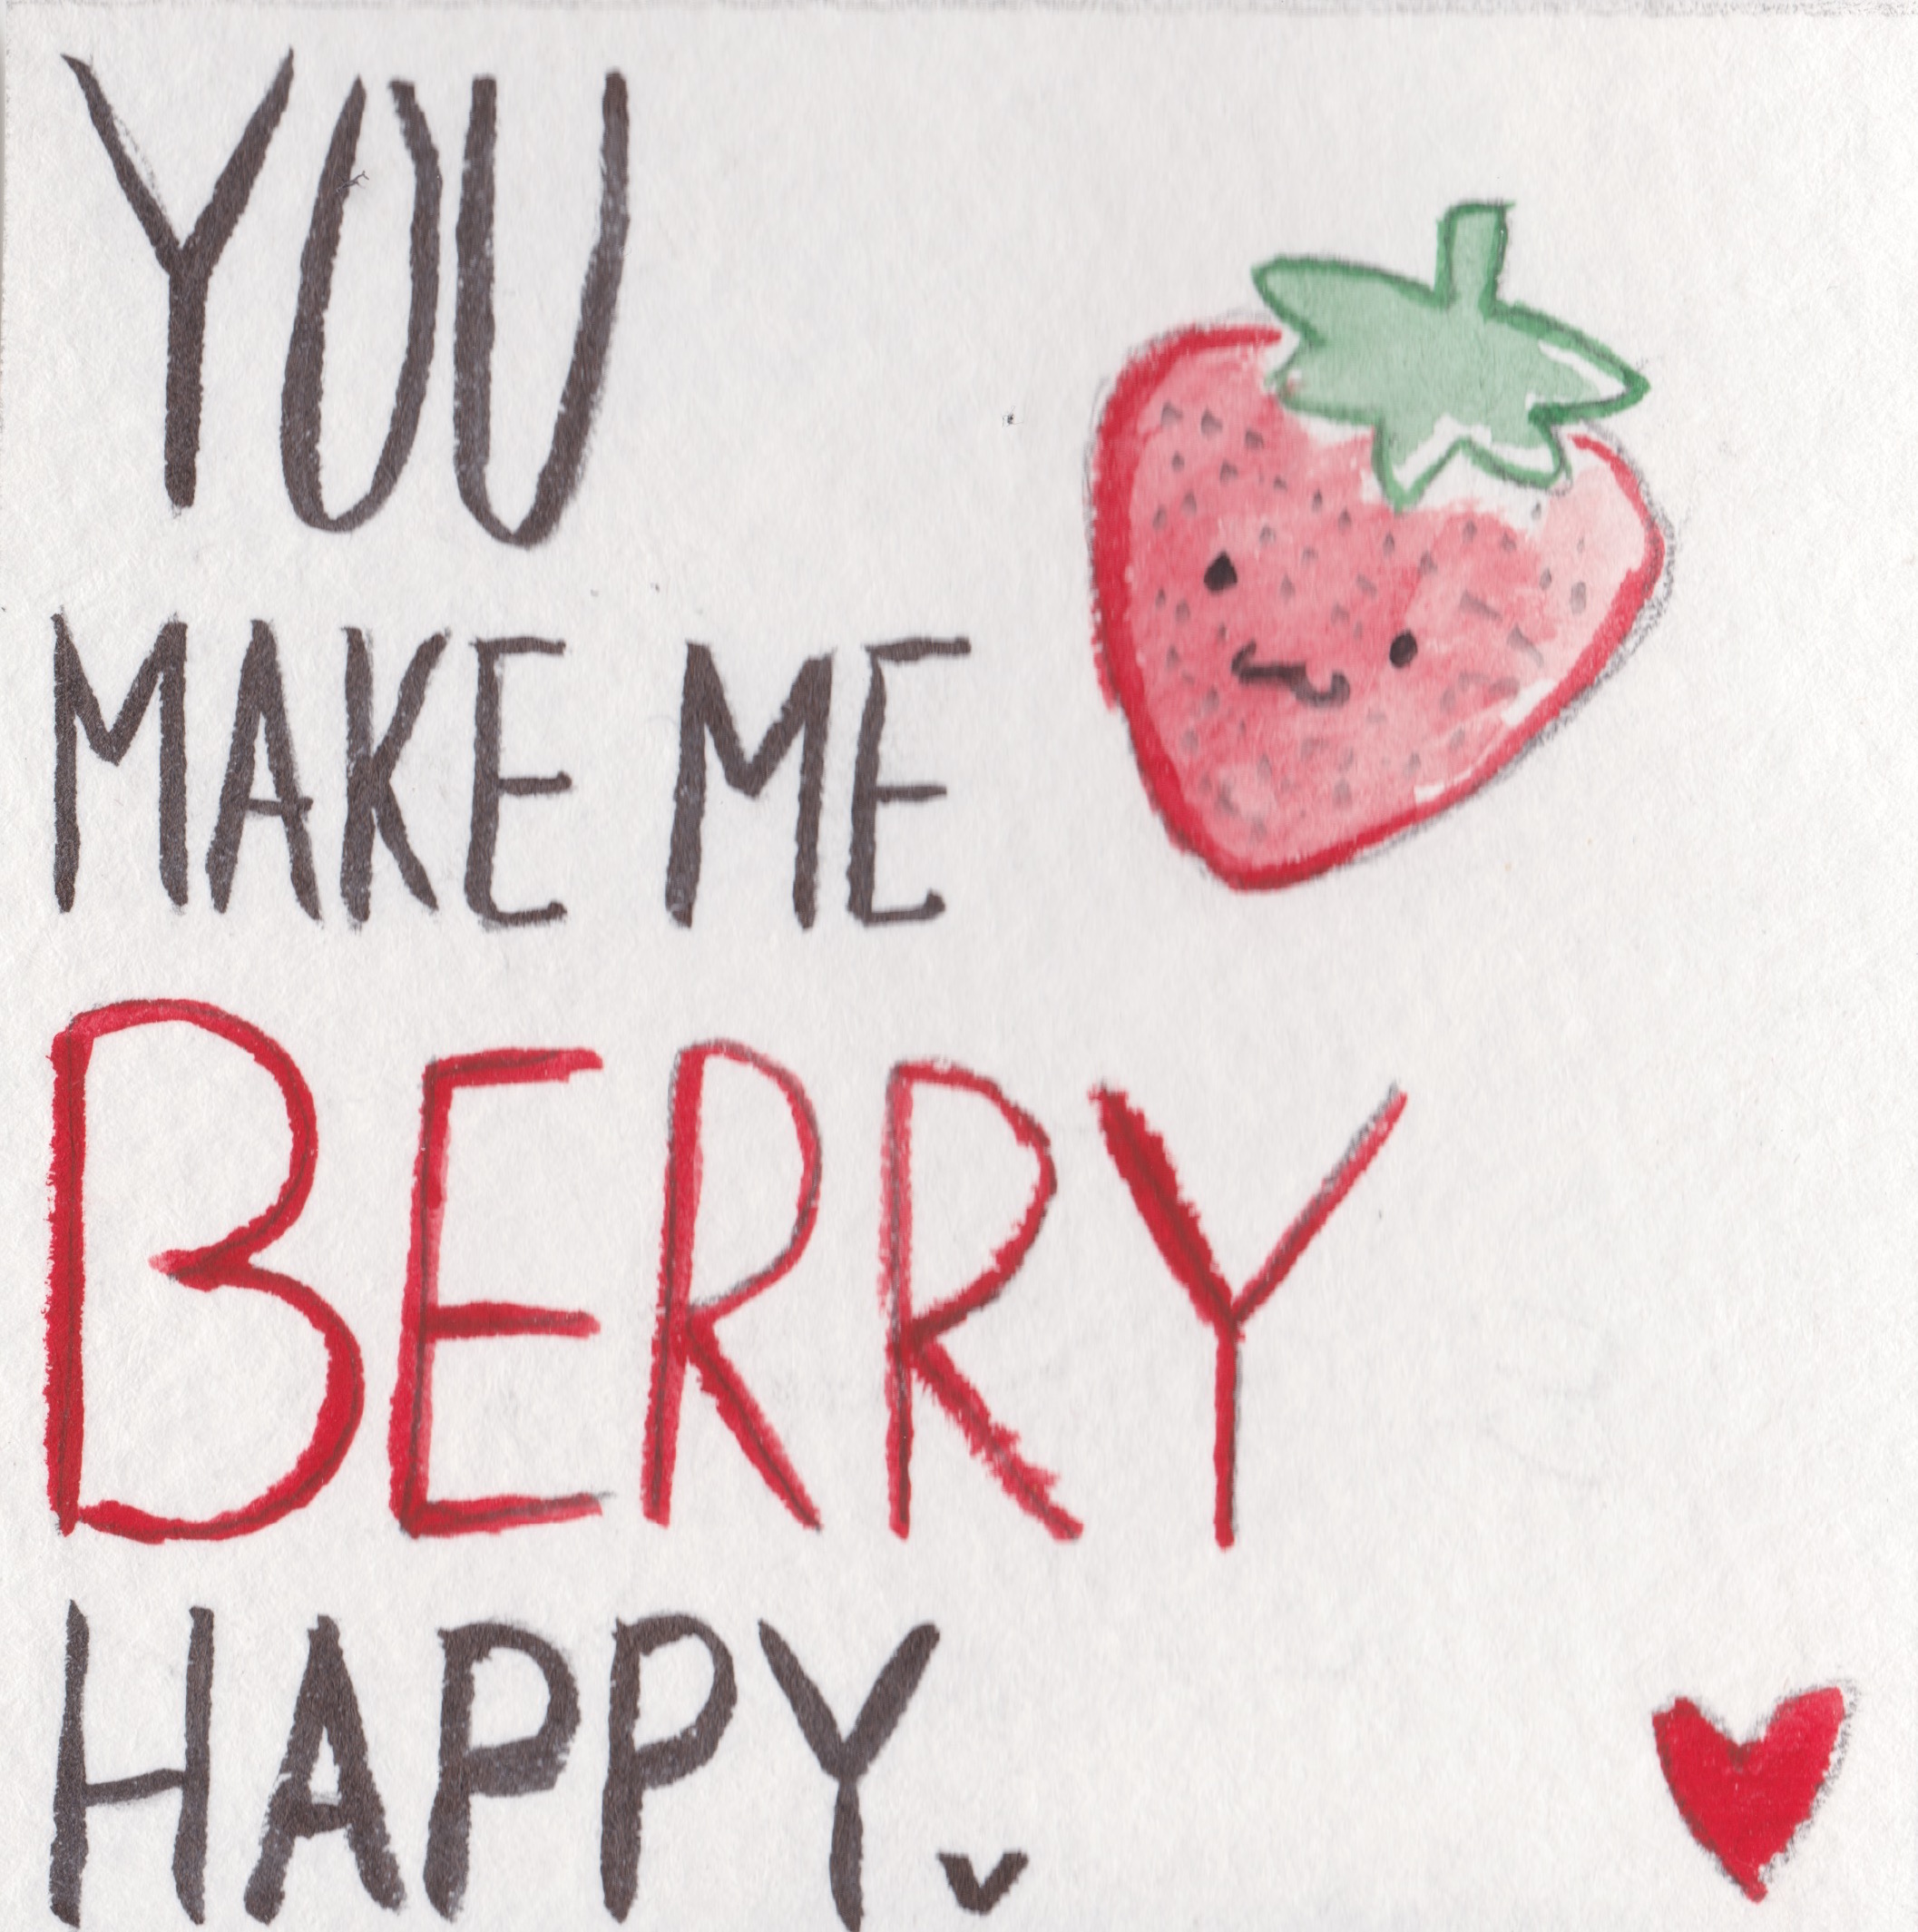 YOU
MAKE ME
BERRY
HAPPY